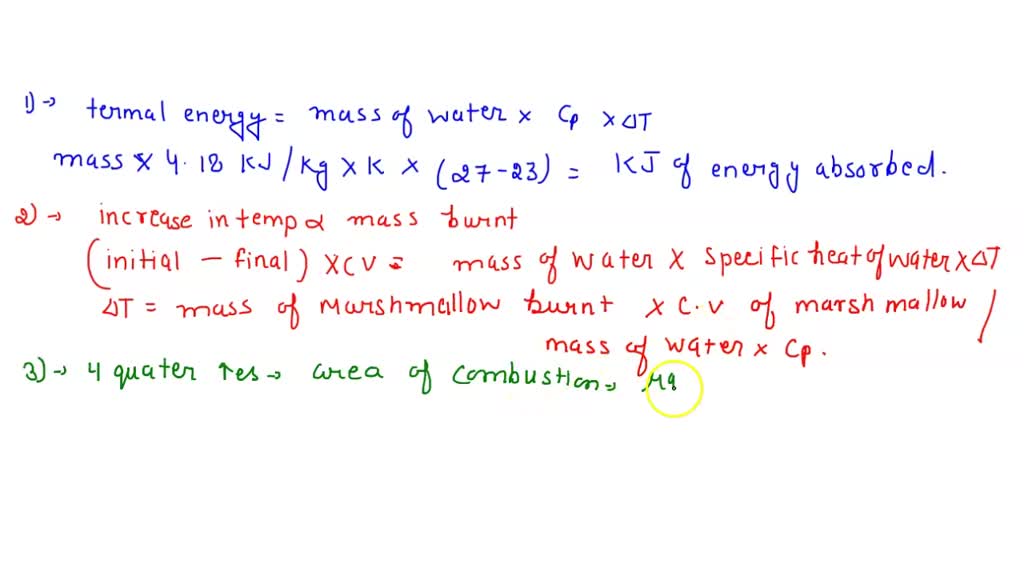 1)→ termal energy = mass of water × Cp × ΔT
mass × 4.18 KJ/Kg × K × (27-23) = KJ of energy absorbed.
2)→ increase in temp α mass burnt
(initial - final) × CV = mass of water × specific heat of water × ΔT
ΔT = mass of Marshmallow burnt × C.V of marshmallow /
mass of water × Cp.
3)→ 4 quater ↑es → area of combustion →